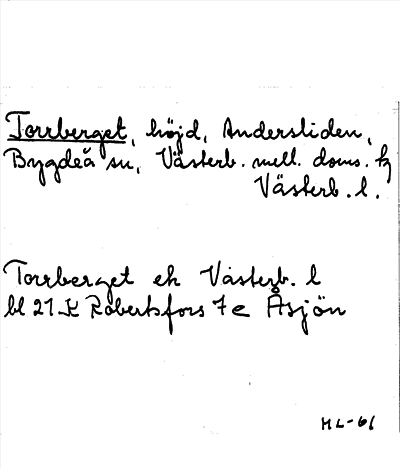 Torrberget, höjd, Andersliden,
Bygdeå sn, Västerb. mell. doms. tg
Västerb. l.
Torrberget ek Västerb. l
bl 21 K Robertsfors 7 e Åsjön
HL-61